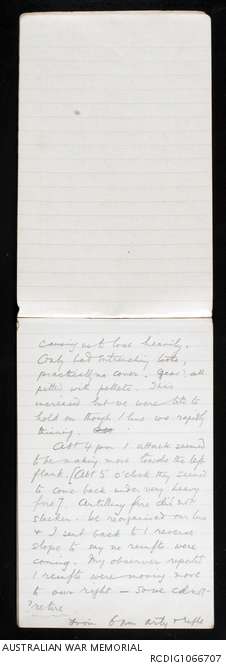 causing us to lose heavily.
Only had intrenching tools,
practically no cover. Gear all
pitted with pellets. This
increased but we were able to
hold on though / line was rapidly
thinning.
Abt 4 pm / attack seemed
to be making more towards the left
flank. [Abt 5 o'clock they seemed
to come back under very heavy
fire]. Artillery fire did not
slacken. We reorganised our line
& I sent back to / reverse
slope to say no reinfts were
coming. My observer reports
/ reinfts were moving more
to our right — some cdnot
retire
From 6 pm arty & rifle
AUSTRALIAN WAR MEMORIAL
RCDIG1066707